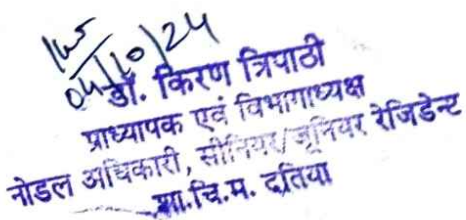 04/10/24
डॉ. किरण त्रिपाठी
प्राध्यापक एवं विभागाध्यक्ष
नोडल अधिकारी, सीनियर/जूनियर रेजिडेन्ट
शा.चि.म. दतिया